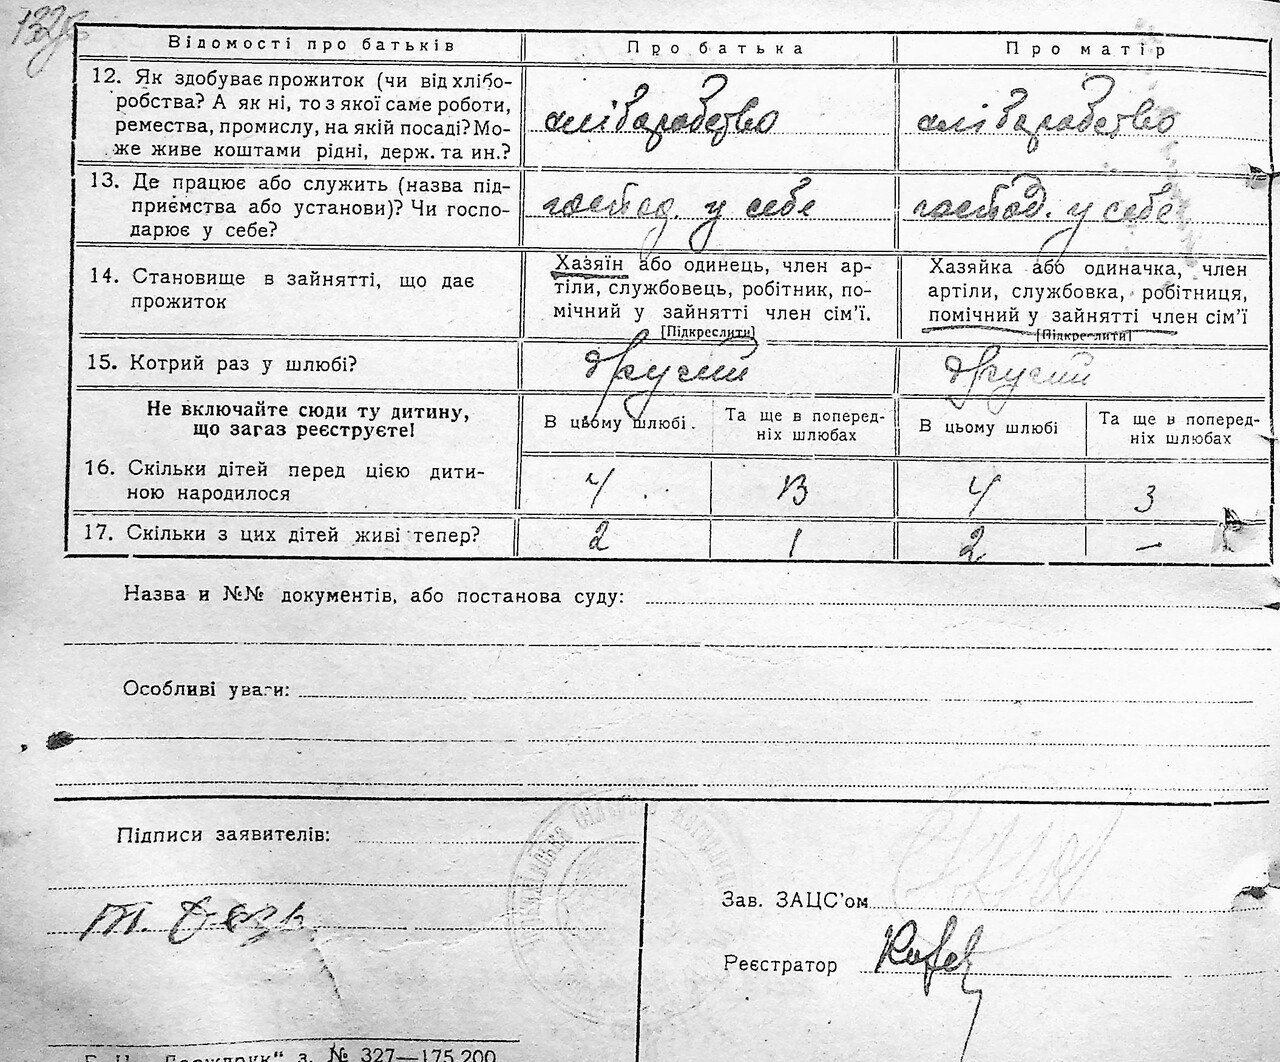 132
Відомості про батьків
Про батька
Про матір
12. Як здобуває прожиток (чи від хлібо-
робства? А як ні, то з якої саме роботи,
ремества, промислу, на якій посаді? Мо-
же живе коштами рідні, держ. та ин.?
хліборобство
хліборобство
13. Де працює або служить (назва під-
приємства або установи)? Чи госпо-
дарює у себе?
господ. у себе
господ. у себе
14. Становище в зайнятті, що дає
прожиток
Хазяїн або одинець, член ар-
тіли, службовець, робітник, по-
мічний у зайнятті член сім'ї.
[Підкреслити]
Хазяйка або одиначка, член
артіли, службовка, робітниця,
помічний у зайнятті член сім'ї
[Підкреслити]
15. Котрий раз у шлюбі?
другий
другий
Не включайте сюди ту дитину,
що загаз реєструєте!
В цьому шлюбі.
Та ще в поперед-
ніх шлюбах
В цьому шлюбі
Та ще в поперед-
ніх шлюбах
16. Скільки дітей перед цією дити-
ною народилося
4
4
3
17. Скільки з цих дітей живі тепер?
2
1
2
—
Назва и №№ документів, або постанова суду:
Особливі уваги:
Підписи заявителів:
Зав. ЗАЦС'ом
Реєстратор
з. № 327—175.200